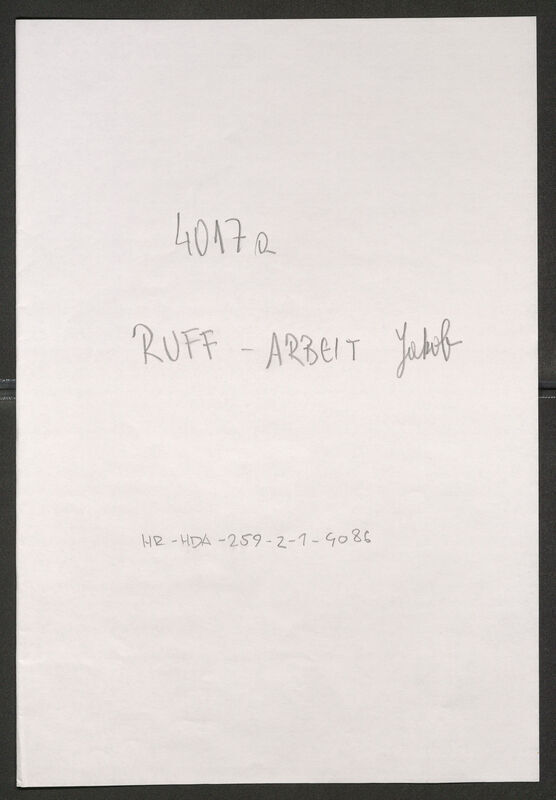 4017a
RUFF - ARBEIT Jakob
HR-HDA-259-2-1-4086